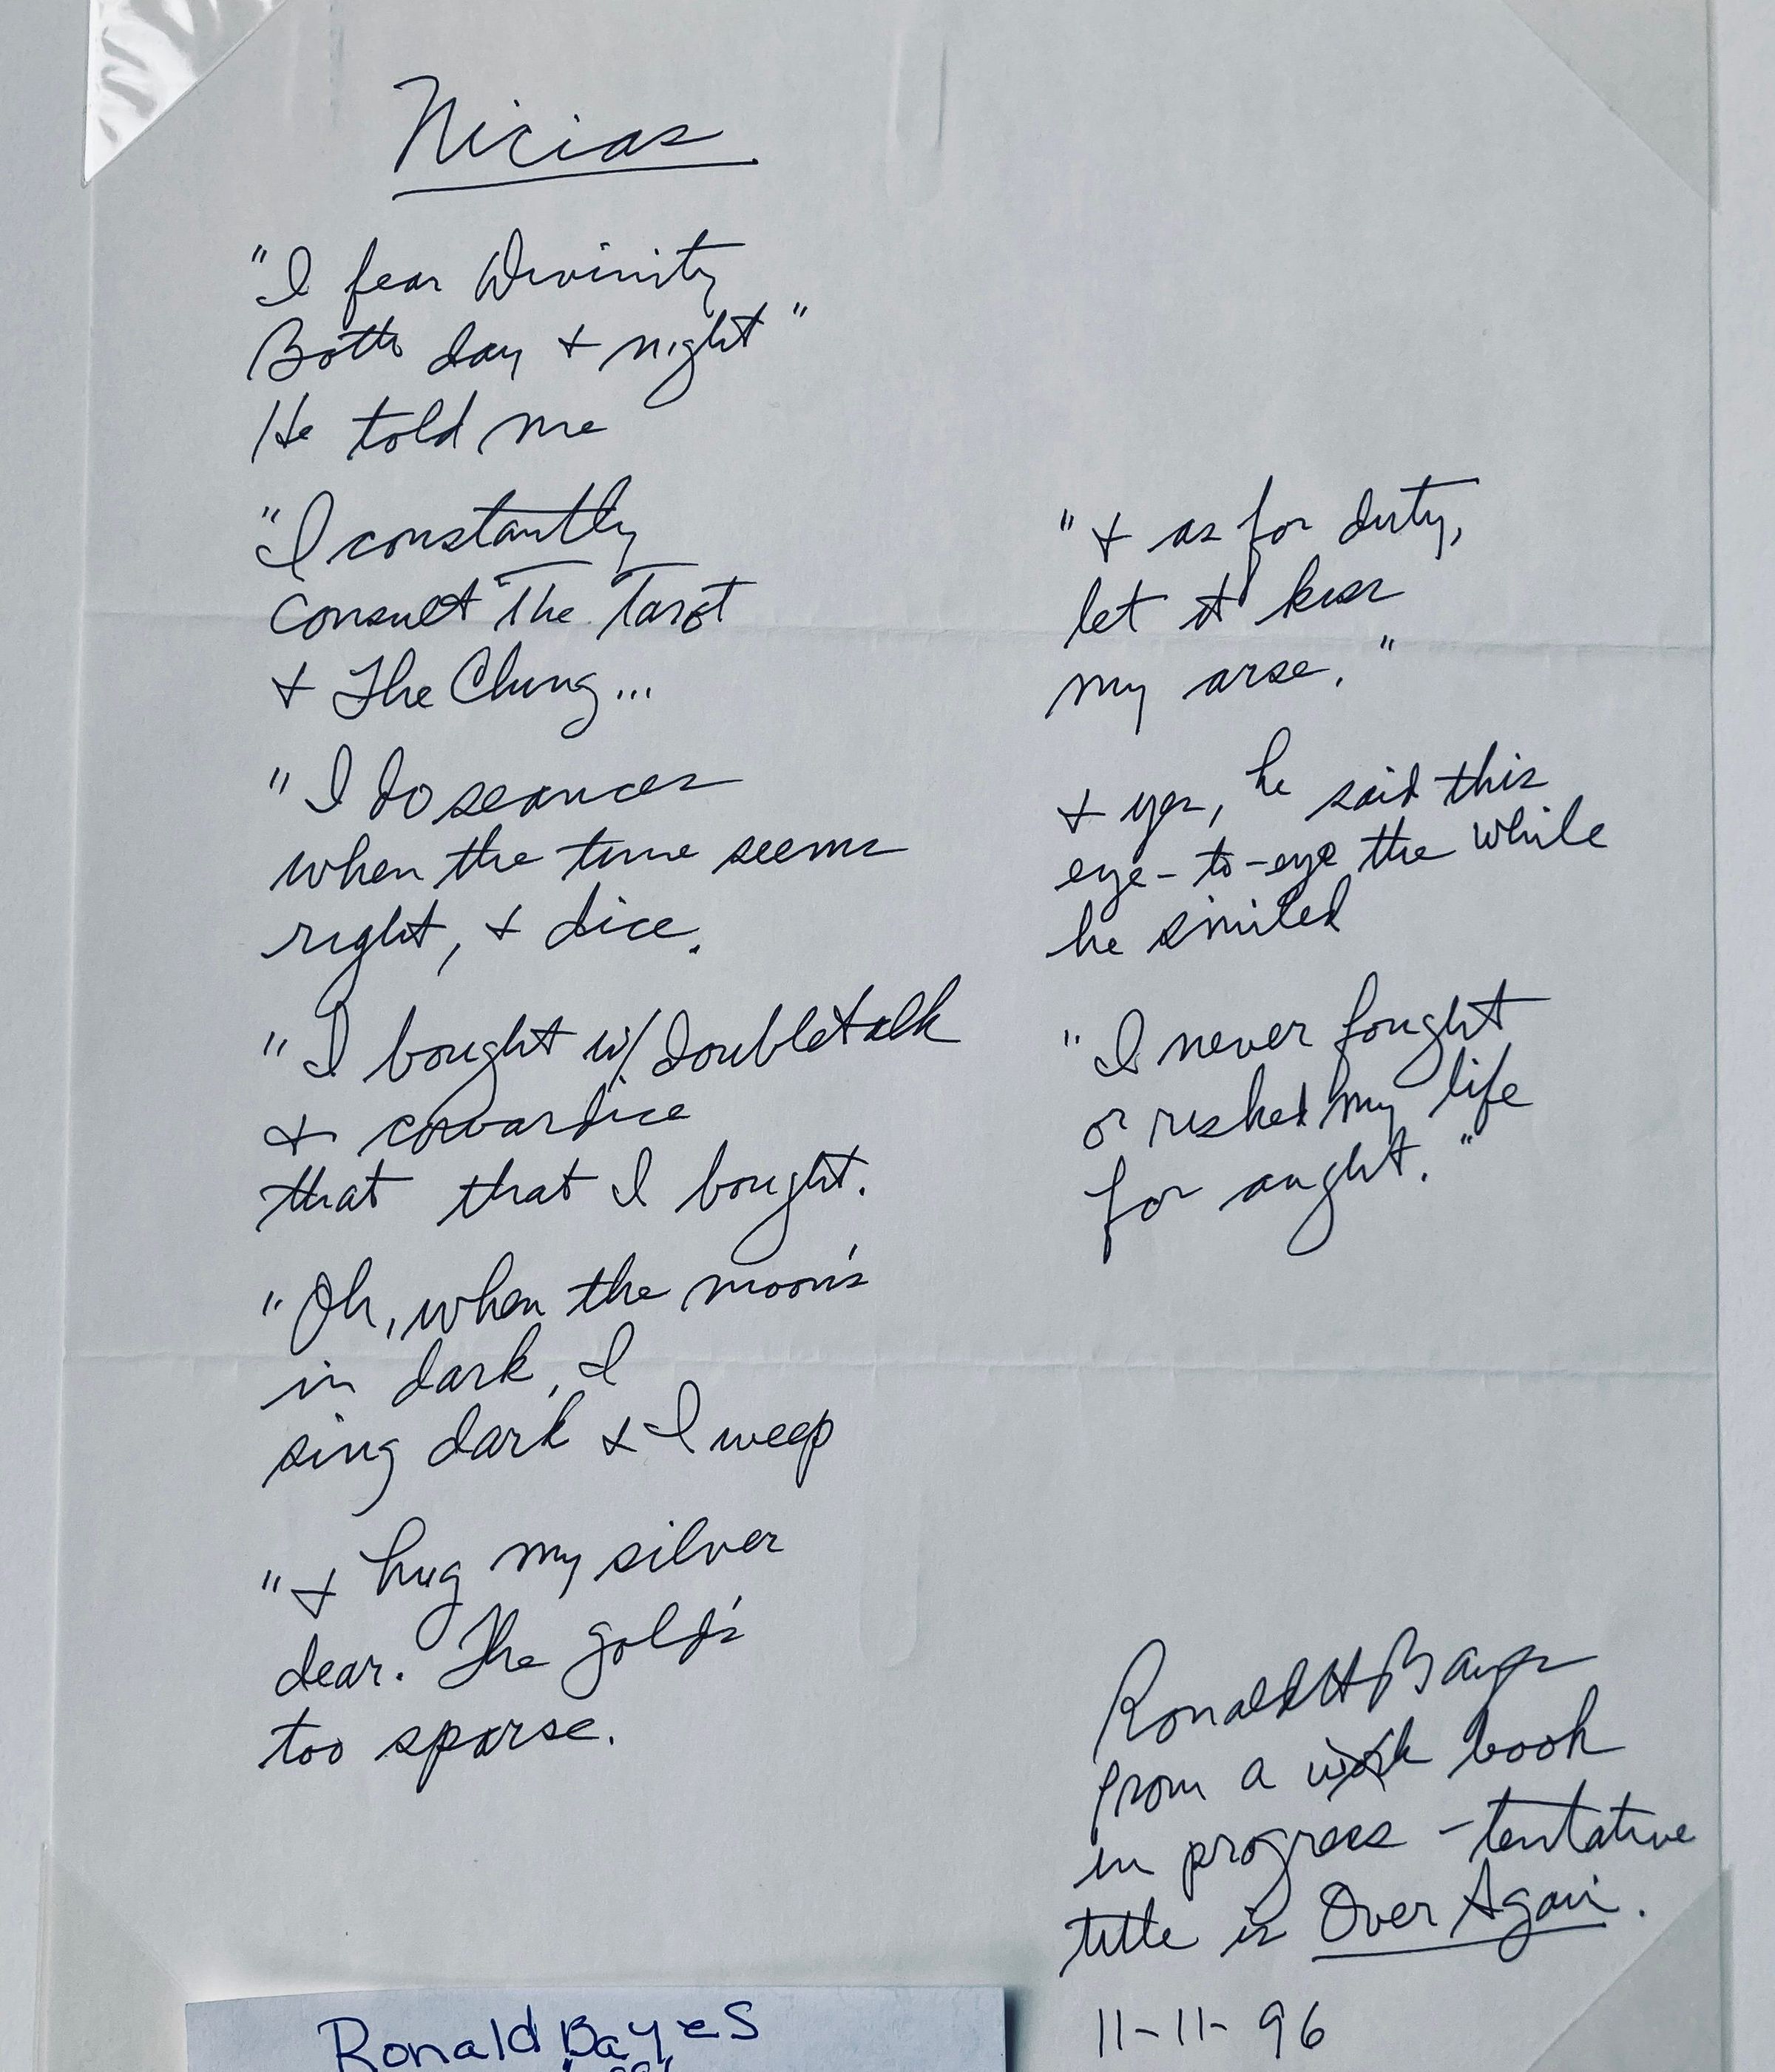 Nicias
"I fear Divinity
Both day & night"
He told me
"I constantly
Consult The Tarot
& The Ching...
"I do seances
when the time seems
right, & dice.
"I bought w/ doubletalk
& cowardice
that that I bought.
"Oh, when the moon's
in dark, I
sing dark & I weep
"& hug my silver
dear. The gold's
too sparse.
"& as for duty,
let it kiss
my arse."
& yes, he said this
eye-to-eye the while
he smiled
"I never fought
or risked my life
for aught."
Ronald H Bayes
from a book
in progress - tentative
title is Over Again.
11-11-96
Ronald Bayes